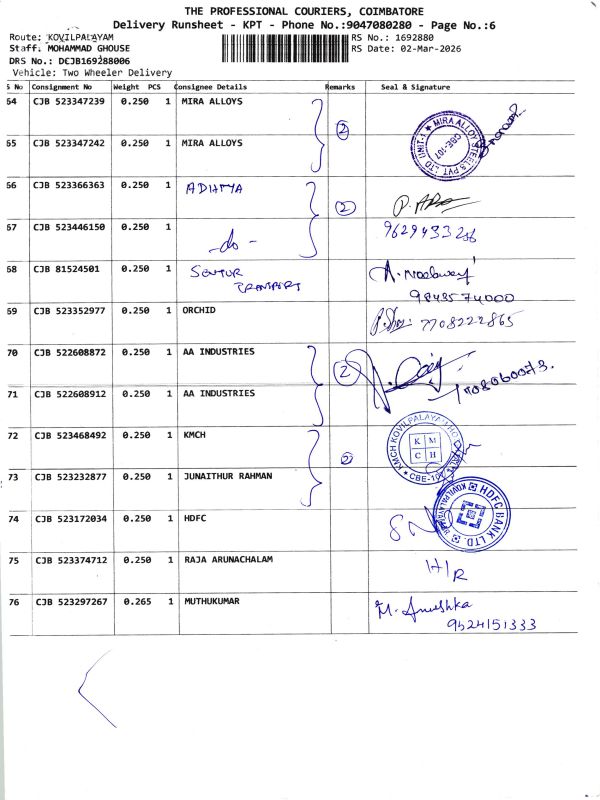 THE PROFESSIONAL COURIERS, COIMBATORE
Delivery Runsheet - KPT - Phone No.:9047080280 - Page No.:6
Route: KOVILPALAYAM
RS No.: 1692880
Staff: MOHAMMAD GHOUSE
RS Date: 02-Mar-2026
DRS No.: DCJB169288006
Vehicle: Two Wheeler Delivery
S No Consignment No Weight PCS Consignee Details Remarks Seal & Signature
64 CJB 523347239 0.250 1 MIRA ALLOYS
2
MIRA ALLOY STEELS PVT. LTD UNIT-1 CBE-107
65 CJB 523347242 0.250 1 MIRA ALLOYS
66 CJB 523366363 0.250 1 ADHITYA 2
67 CJB 523446150 0.250 1 -do- 9629433286
68 CJB 81524501 0.250 1 SENTUR
TRANSPORT
9843574000
69 CJB 523352977 0.250 1 ORCHID 7708222865
70 CJB 522608872 0.250 1 AA INDUSTRIES 2
71 CJB 522608912 0.250 1 AA INDUSTRIES
72 CJB 523468492 0.250 1 KMCH 2
KMCH KOVILPALAYAM
K M
C H
CBE-107
73 CJB 523232877 0.250 1 JUNAITHUR RAHMAN
74 CJB 523172034 0.250 1 HDFC
HDFC BANK LTD. KOVILPALAYAM
75 CJB 523374712 0.250 1 RAJA ARUNACHALAM H/R
76 CJB 523297267 0.265 1 MUTHUKUMAR M. Anushka
9524151333